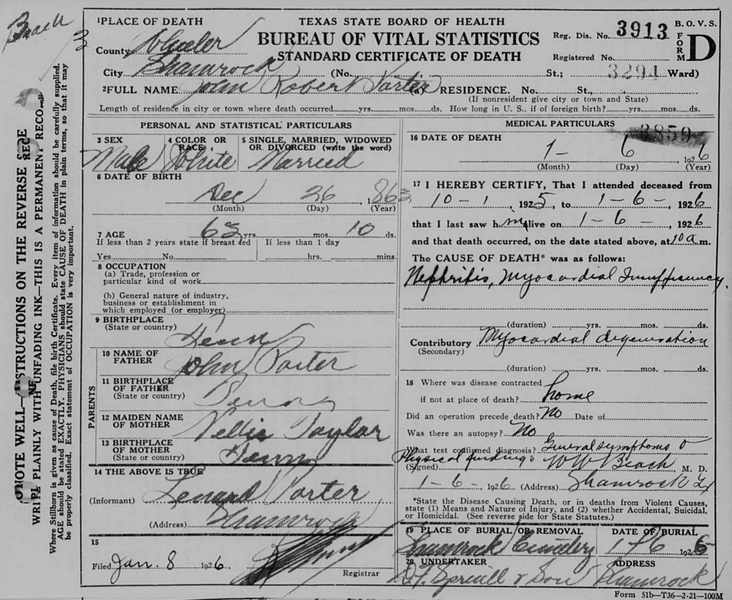 Beach
3
1 PLACE OF DEATH
TEXAS STATE BOARD OF HEALTH
BUREAU OF VITAL STATISTICS
STANDARD CERTIFICATE OF DEATH
Reg. Dis. No. 3913
B. O. V. S.
FORM D
County Wheeler
City Shamrock (No. St.; Ward)
Registered No. 3294
2 FULL NAME John Robert Porter RESIDENCE. No. St.,
(If nonresident give city or town and State)
Length of residence in city or town where death occurred yrs. mos. ds. How long in U. S., if of foreign birth? yrs. mos. ds.
PERSONAL AND STATISTICAL PARTICULARS
3 SEX Male
4 COLOR OR RACE White
5 SINGLE, MARRIED, WIDOWED OR DIVORCED (write the word) Married
6 DATE OF BIRTH
Dec 26 186
(Month) (Day) (Year)
7 AGE yrs. mos. 10 ds.
If less than 2 years state if breast fed If less than 1 day
Yes No hrs. mins.
8 OCCUPATION
(a) Trade, profession or particular kind of work
(b) General nature of industry, business or establishment in which employed (or employer)
9 BIRTHPLACE
(State or country) Tenn
PARENTS
10 NAME OF FATHER John Porter
11 BIRTHPLACE OF FATHER
(State or country) Tenn
12 MAIDEN NAME OF MOTHER Nellie Taylor
13 BIRTHPLACE OF MOTHER
(State or country) Tenn
14 THE ABOVE IS TRUE
(Informant) Porter
(Address) Shamrock
15
Filed Jan. 8 1926
Registrar
MEDICAL PARTICULARS
3850
16 DATE OF DEATH
1- 6 1926
(Month) (Day) (Year)
17 I HEREBY CERTIFY, That I attended deceased from
10-1, 1925, to 1-6-, 1926
that I last saw him alive on 1-6-, 1926
and that death occurred, on the date stated above, at 10 a m.
The CAUSE OF DEATH* was as follows:
Nephritis, Myocardial Insufficiency
(duration) yrs. mos. ds.
Contributory Myocardial degeneration
(Secondary)
(duration) yrs. mos. ds.
18 Where was disease contracted
if not at place of death? home
Did an operation precede death? No Date of
Was there an autopsy? No
What test confirmed diagnosis? General symptoms &
Physical findings
(Signed) W W Beach M. D.
1-6- 1926 (Address) Shamrock
*State the Disease Causing Death, or in deaths from Violent Causes, state (1) Means and Nature of Injury, and (2) whether Accidental, Suicidal, or Homicidal. (See reverse side for State Statutes.)
19 PLACE OF BURIAL OR REMOVAL Shamrock Cemetery
DATE OF BURIAL 1-6 1926
20 UNDERTAKER Spruill & Son
ADDRESS Shamrock
Form 51b—T36—2-21—100M
NOTE WELL—INSTRUCTIONS ON THE REVERSE SIDE
WRITE PLAINLY WITH UNFADING INK—THIS IS A PERMANENT RECORD
Where Stillborn is given as cause of Death, file birth Certificate. Every item of information should be carefully supplied.
AGE should be stated EXACTLY. PHYSICIANS should state CAUSE OF DEATH in plain terms, so that it may
be properly classified. Exact statement of OCCUPATION is very important.